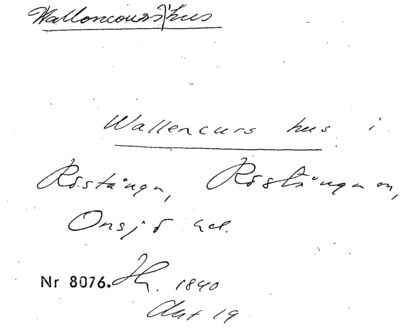 Walloncours hus
Wallencurs hus i
Röstånga, Röstånga sn,
Onsjö hd.
Nr 8076. 1840
Akt 19